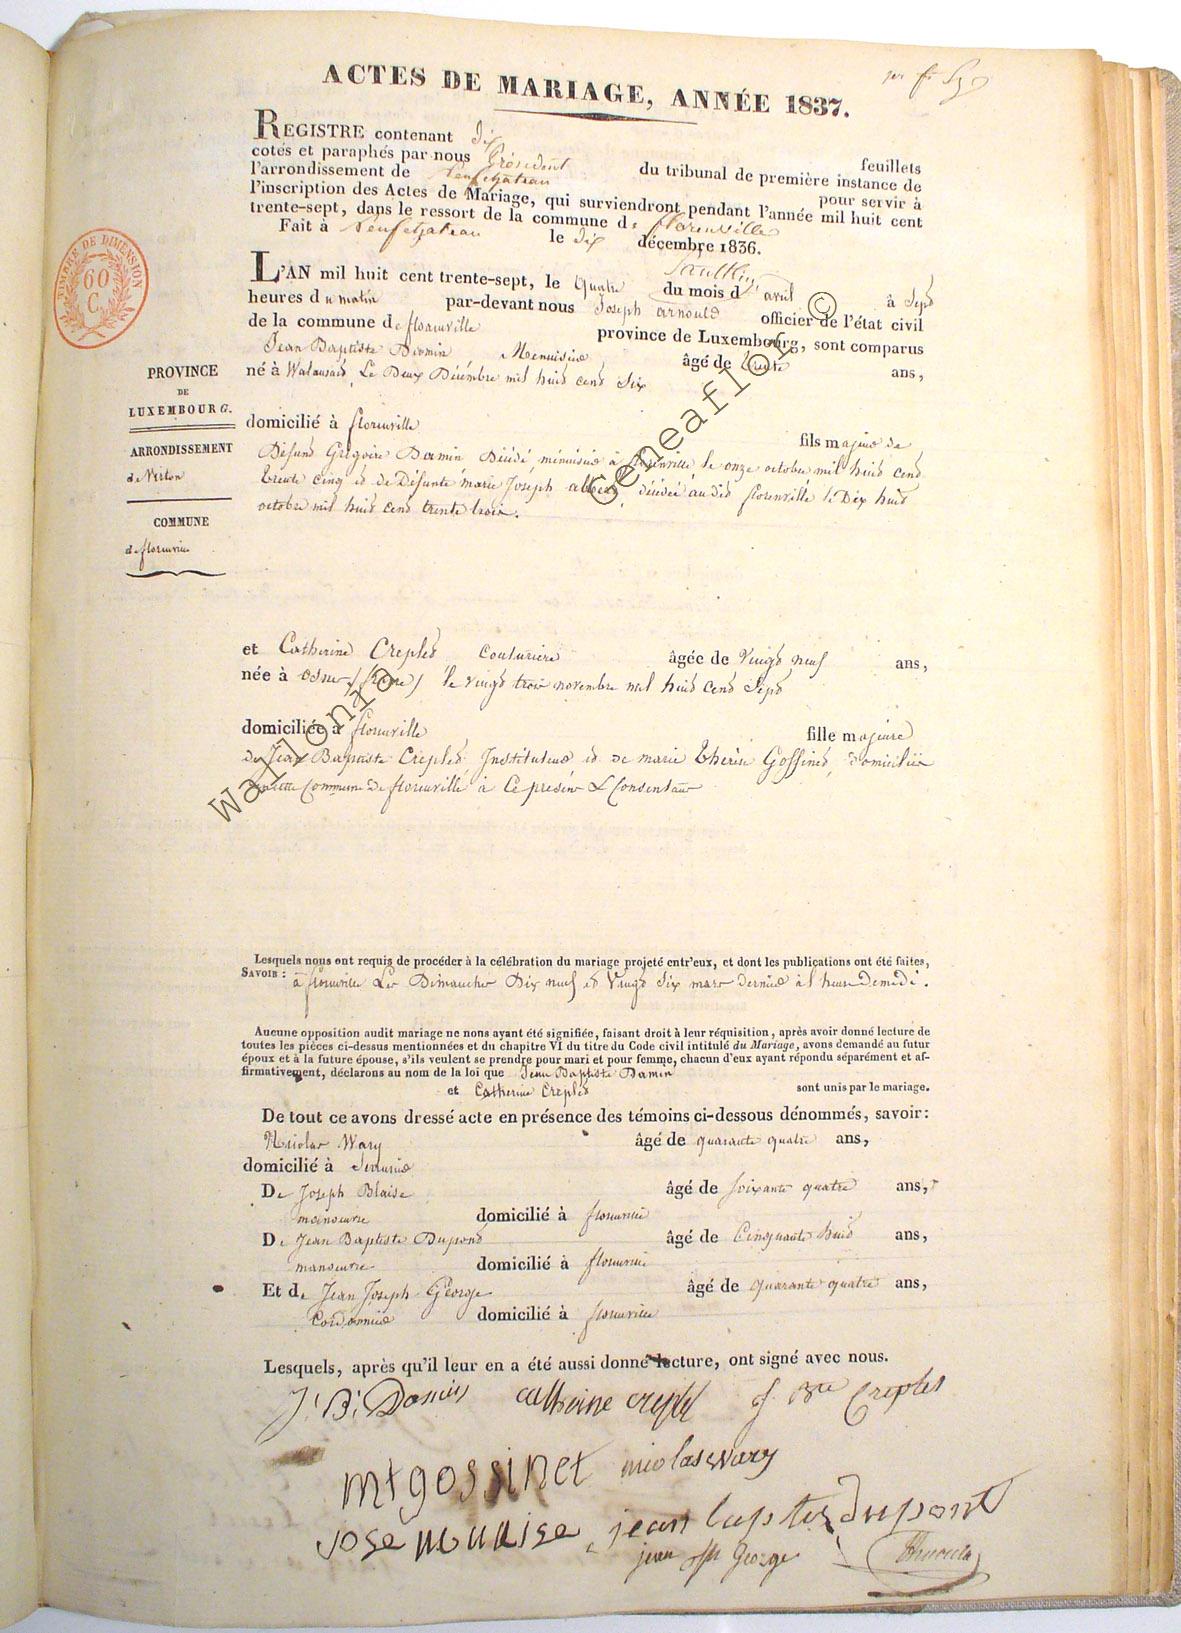 ACTES DE MARIAGE, ANNÉE 1837.
REGISTRE contenant dix feuillets
cotés et paraphés par nous Président du tribunal de première instance de
l'arrondissement de Neufchâteau pour servir à
l'inscription des Actes de Mariage, qui surviendront pendant l'année mil huit cent
trente-sept, dans le ressort de la commune de florenville
Fait à Neufchateau le dix décembre 1836.
TIMBRE DE DIMENSION
60
C.
L'AN mil huit cent trente-sept, le quatre du mois d'avril à sept
heures du matin par-devant nous Joseph arnould officier de l'état civil
de la commune de florenville province de Luxembourg, sont comparus
Jean Baptiste Damin, Menuisier âgé de trente ans,
né à Watansart, Le Deux Décembre mil huit cent six
PROVINCE
DE
LUXEMBOURG.
ARRONDISSEMENT
de Virton
COMMUNE
de florenville
domicilié à florenville fils majeur de
Défunt Grégoire Damin Décédé, menuisier à florenville le onze octobre mil huit cent
trente cinq et de Défunte marie Joseph, décédée audit florenville le Dix huit
octobre mil huit cent trente trois.
et Catherine Creplet, couturière âgée de vingt neuf ans,
née à osnes, le vingt trois novembre mil huit cent sept
domiciliée à florenville fille majeure
de Jean Baptiste Creplet Instituteur et de marie thérèse Gossinet, domiciliés
en cette Commune de florenville à Ce présens & Consentans
wallonia Geneaflor ©
Lesquels nous ont requis de procéder à la célébration du mariage projeté entr'eux, et dont les publications ont été faites,
SAVOIR : à florenville Les Dimanches Dix neuf et vingt Six mars dernier à l'heure de midi.
Aucune opposition audit mariage ne nous ayant été signifiée, faisant droit à leur réquisition, après avoir donné lecture de
toutes les pièces ci-dessus mentionnées et du chapitre VI du titre du Code civil intitulé du Mariage, avons demandé au futur
époux et à la future épouse, s'ils veulent se prendre pour mari et pour femme, chacun d'eux ayant répondu séparément et af-
firmativement, déclarons au nom de la loi que Jean Baptiste Damin
et Catherine Creplet sont unis par le mariage.
De tout ce avons dressé acte en présence des témoins ci-dessous dénommés, savoir:
Nicolas Wary âgé de quarante quatre ans,
domicilié à
De Joseph Blaise âgé de soixante quatre ans,
manoeuvre domicilié à florenville
De Jean Baptiste Dupont âgé de Cinquante huit ans,
manoeuvre domicilié à florenville
Et de Jean Joseph George âgé de quarante quatre ans,
Cordonnier domicilié à florenville
Lesquels, après qu'il leur en a été aussi donné lecture, ont signé avec nous.
J: B: Damin catherine creplet J. Bte Creplet
mt gossinet nicolas wary
jean baptiste dupont
jean jph George